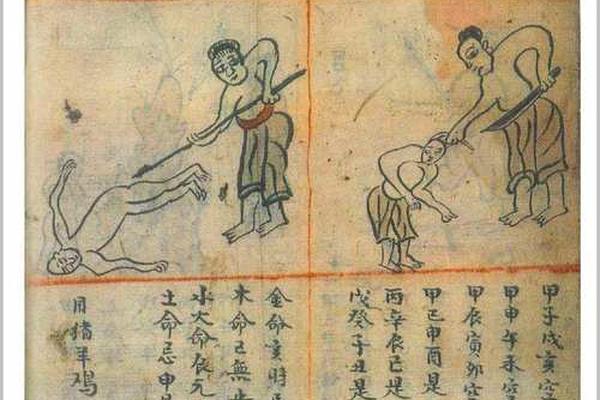 甲子戌亥空
甲申午未空
甲辰寅卯空
甲己申酉是
丙辛辰巳是
戊癸子丑是
金命亥時
木命己無
水火命辰
土命忌申
用猪羊鸡